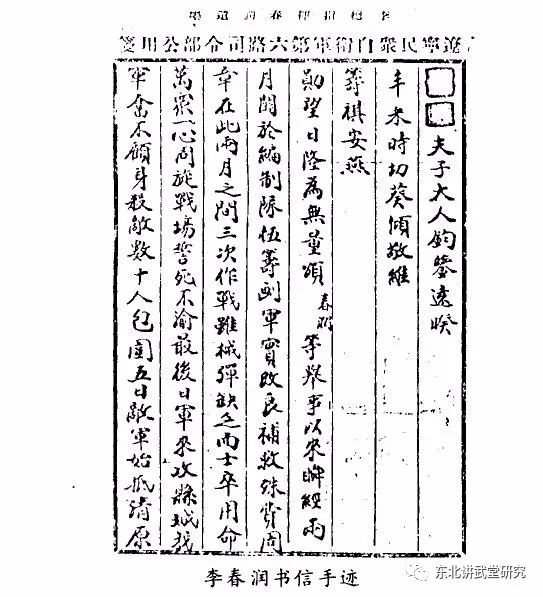 總指揮春潤遺墨
遼寧民衆自衛軍第六路司令部公用箋
夫子大人鈞鑒遠睽
丰采時切葵傾敬維
籌祺安燕
勛望日隆為無量頌春潤等舉事以來瞬經兩
月關於編制隊伍籌劃軍實改良補救殊費周
章在此兩月之間三次作戰雖械彈缺乏而士卒用命
萬眾一心周旋戰場誓死不渝最後日軍來攻縣城我
軍奮不顧身殺敵數十人包圍五日敵軍始抵清原
李春润书信手迹
东北讲武堂研究